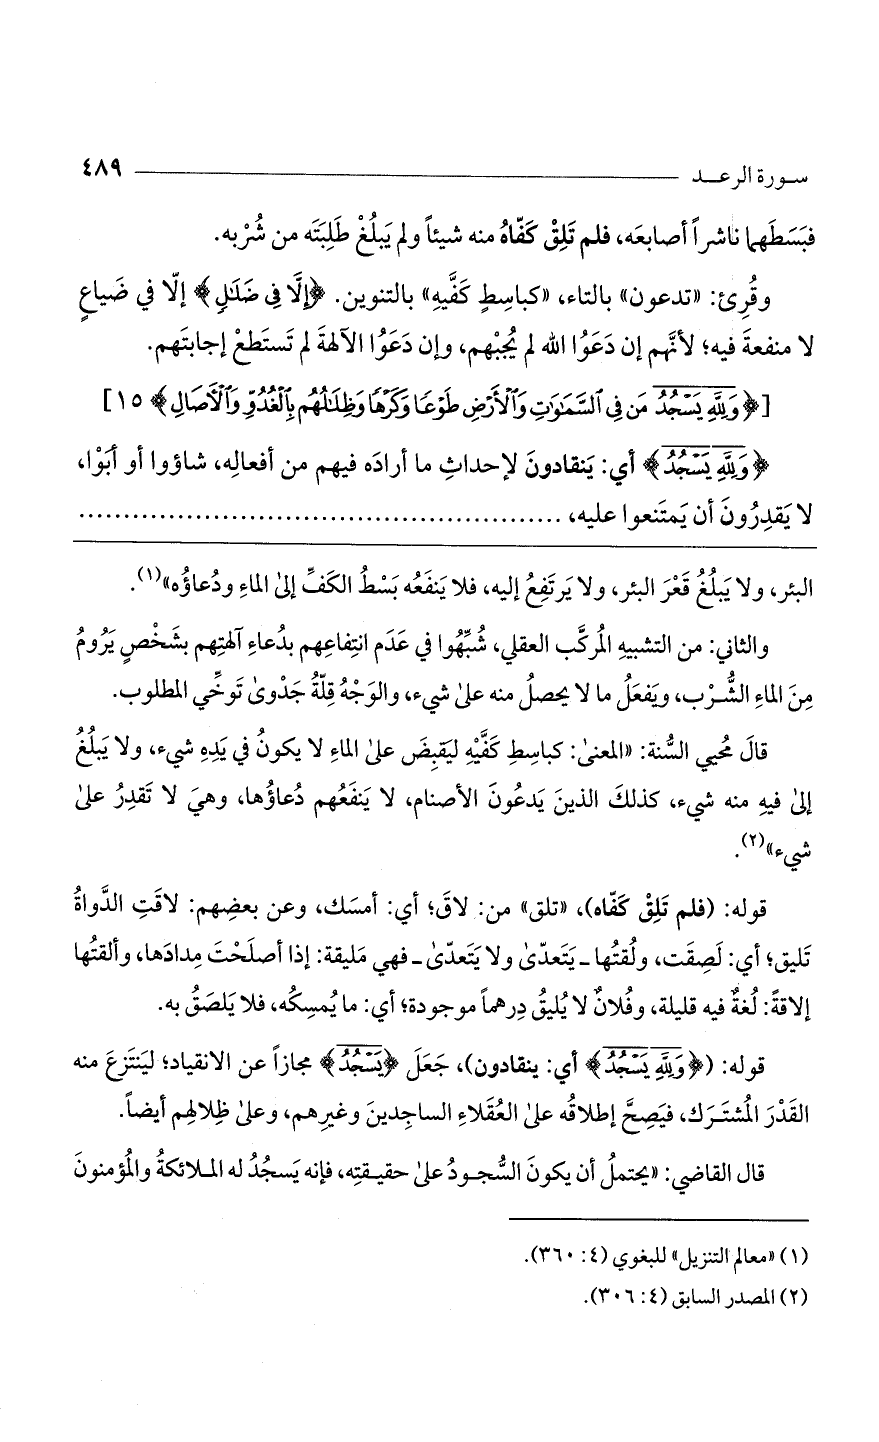 سورة الرعد ٤٨٩
فبَسَطَهما ناشراً أصابعَه، فلم تَلِقْ كَفّاهُ منه شيئاً ولم يَبلُغْ طَلِبَتَه من شُرْبه.
وقُرِئ: «تدعون» بالتاء، «كباسِطٍ كَفَّيهِ» بالتنوين. ﴿إِلَّا فِي ضَلَٰلٍ﴾ إلّا في ضَياعٍ
لا منفعةَ فيه؛ لأنَّهم إن دَعَوُا الله لم يُجِبْهم، وإن دَعَوُا الآلهةَ لم تَستَطعْ إجابتَهم.
[﴿وَلِلَّهِ يَسْجُدُ مَن فِي ٱلسَّمَٰوَٰتِ وَٱلْأَرْضِ طَوْعًا وَكَرْهًا وَظِلَٰلُهُم بِٱلْغُدُوِّ وَٱلْأٓصَالِ﴾ ١٥]
﴿وَلِلَّهِ يَسْجُدُ﴾ أي: يَنقادونَ لإحداثِ ما أرادَه فيهم من أفعالِه، شاؤوا أو أبَوْا،
لا يَقدِرُونَ أن يَمتَنعوا عليه، ......................................................
البئر، ولا يَبلُغُ قَعْرَ البئر، ولا يَرتَفِعُ إليه، فلا يَنفَعُه بَسْطُ الكَفِّ إلىٰ الماءِ ودُعاؤُه»(١).
والثاني: من التشبيهِ المُركَّب العقلي، شُبِّهُوا في عَدَم انتِفاعِهم بدُعاءِ آلهتِهم بشَخْصٍ يَرُومُ
مِنَ الماءِ الشُّرْب، ويَفعَلُ ما لا يحصلُ منه علىٰ شيء، والوَجْهُ قِلّةُ جَدْوىٰ تَوخِّي المطلوب.
قالَ مُحيي السُّنة: «المعنىٰ: كباسطِ كَفَّيْهِ ليَقبِضَ علىٰ الماءِ لا يكونُ في يَدِهِ شيء، ولا يَبلُغُ
إلىٰ فيهِ منه شيء، كذلكَ الذينَ يَدعُونَ الأصنام، لا يَنفَعُهم دُعاؤُها، وهيَ لا تَقدِرُ علىٰ
شيء»(٢).
قوله: (فلم تَلِقْ كَفّاه)، «تلق» من: لاقَ؛ أي: أمسَك، وعن بعضِهم: لاقَتِ الدَّواةُ
تَليق؛ أي: لَصِقَت، ولُقتُها ـ يَتَعدّىٰ ولا يَتَعدّىٰ ـ فهي مَليقة: إذا أصلَحْتَ مِدادَها، وألقتُها
إلاقةً: لُغةٌ فيه قليلة، وفُلانٌ لا يُليقُ دِرهماً موجودة؛ أي: ما يُمسِكُه، فلا يَلصَقُ به.
قوله: (﴿وَلِلَّهِ يَسْجُدُ﴾ أي: ينقادون)، جَعَلَ ﴿يَسْجُدُ﴾ مجازاً عن الانقياد؛ ليَنتَزِعَ منه
القَدْرَ المُشتَـرَك، فيَصِحَّ إطلاقُه علىٰ العُقَلاءِ الساجِدينَ وغيرِهم، وعلىٰ ظِلالِهم أيضاً.
قال القاضي: «يحتملُ أن يكونَ السُّجودُ علىٰ حقيقتِه، فإنه يَسجُدُ له الملائكةُ والمُؤمنونَ
(١) «معالم التنزيل» للبغوي (٤: ٣٦٠).
(٢) المصدر السابق (٤: ٣٠٦).